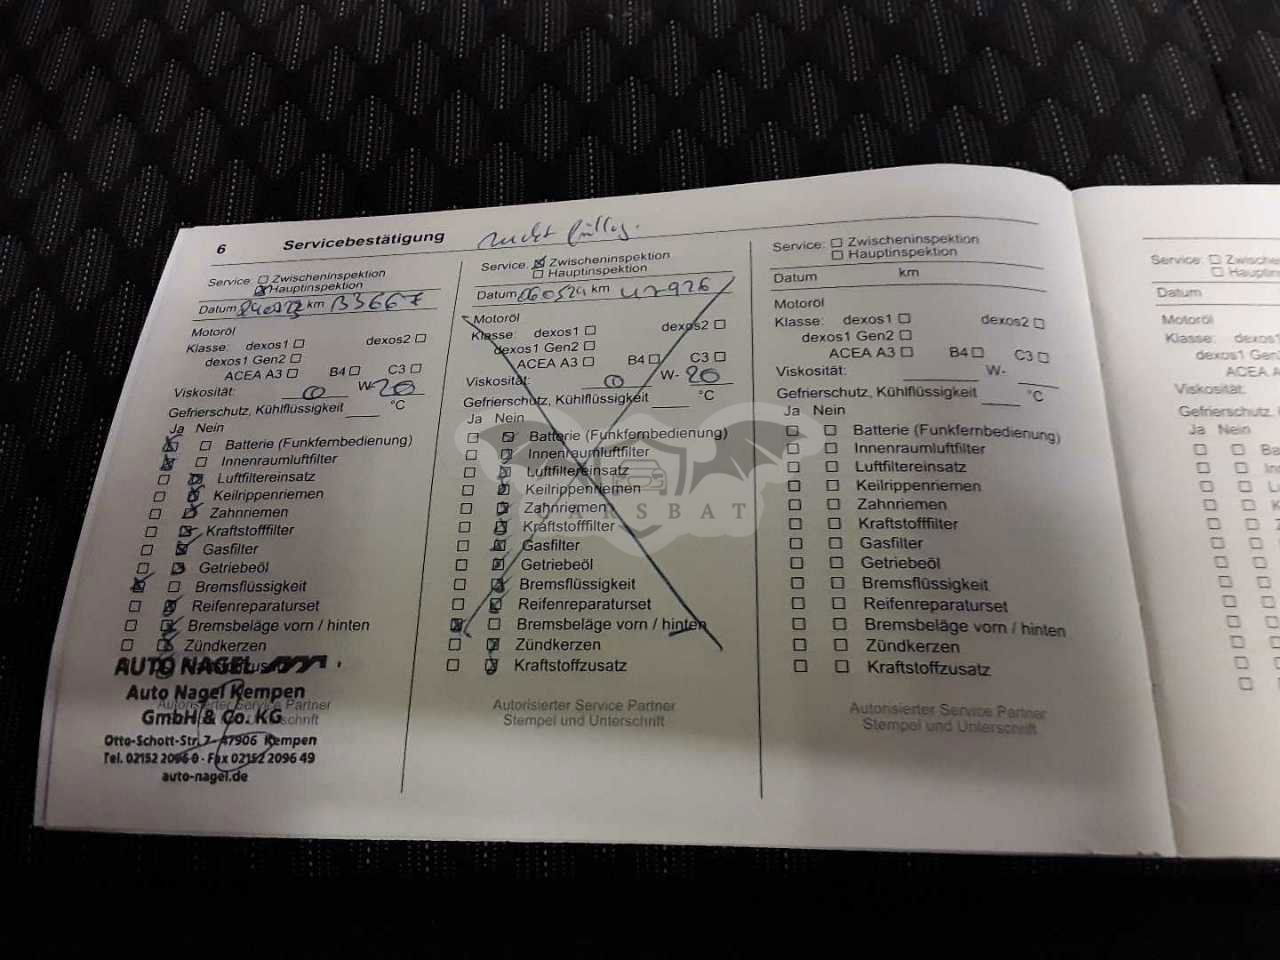 6 Servicebestätigung
Service: Zwischeninspektion
Hauptinspektion
Datum km
Motoröl
Klasse: dexos1 dexos2
dexos1 Gen2
ACEA A3 B4 C3
Viskosität: 0 W- 20
Gefrierschutz, Kühlflüssigkeit °C
Ja Nein
Batterie (Funkfernbedienung)
Innenraumluftfilter
Luftfiltereinsatz
Keilrippenriemen
Zahnriemen
Kraftstofffilter
Gasfilter
Getriebeöl
Bremsflüssigkeit
Reifenreparaturset
Bremsbeläge vorn / hinten
Zündkerzen
Autorisierter Service Partner
AUTO NAGEL
Auto Nagel Kempen
GmbH & Co. KG
Otto-Schott-Str. 7 - 47906 Kempen
Tel. 02152 2096 0 - Fax 02152 2096 49
auto-nagel.de
nicht fällig.
Service: Zwischeninspektion
Hauptinspektion
Datum 060524 km 47926
Motoröl
Klasse: dexos1 dexos2
dexos1 Gen2
ACEA A3 B4 C3
Viskosität: 0 W- 20
Gefrierschutz, Kühlflüssigkeit °C
Ja Nein
Batterie (Funkfernbedienung)
Innenraumluftfilter
Luftfiltereinsatz
Keilrippenriemen
Zahnriemen
Kraftstofffilter
Gasfilter
Getriebeöl
Bremsflüssigkeit
Reifenreparaturset
Bremsbeläge vorn / hinten
Zündkerzen
Kraftstoffzusatz
Autorisierter Service Partner
Stempel und Unterschrift
Service: Zwischeninspektion
Hauptinspektion
Datum km
Motoröl
Klasse: dexos1 dexos2
dexos1 Gen2
ACEA A3 B4 C3
Viskosität: W-
Gefrierschutz, Kühlflüssigkeit °C
Ja Nein
Batterie (Funkfernbedienung)
Innenraumluftfilter
Luftfiltereinsatz
Keilrippenriemen
Zahnriemen
Kraftstofffilter
Gasfilter
Getriebeöl
Bremsflüssigkeit
Reifenreparaturset
Bremsbeläge vorn / hinten
Zündkerzen
Kraftstoffzusatz
Autorisierter Service Partner
Stempel und Unterschrift
Service: Zwischeninspe
Hauptinsp
Datum
Motoröl
Klasse: dexos1
dexos1 Gen
ACEA A
Viskosität:
Gefrierschutz,
Ja Nein
CARSBAT